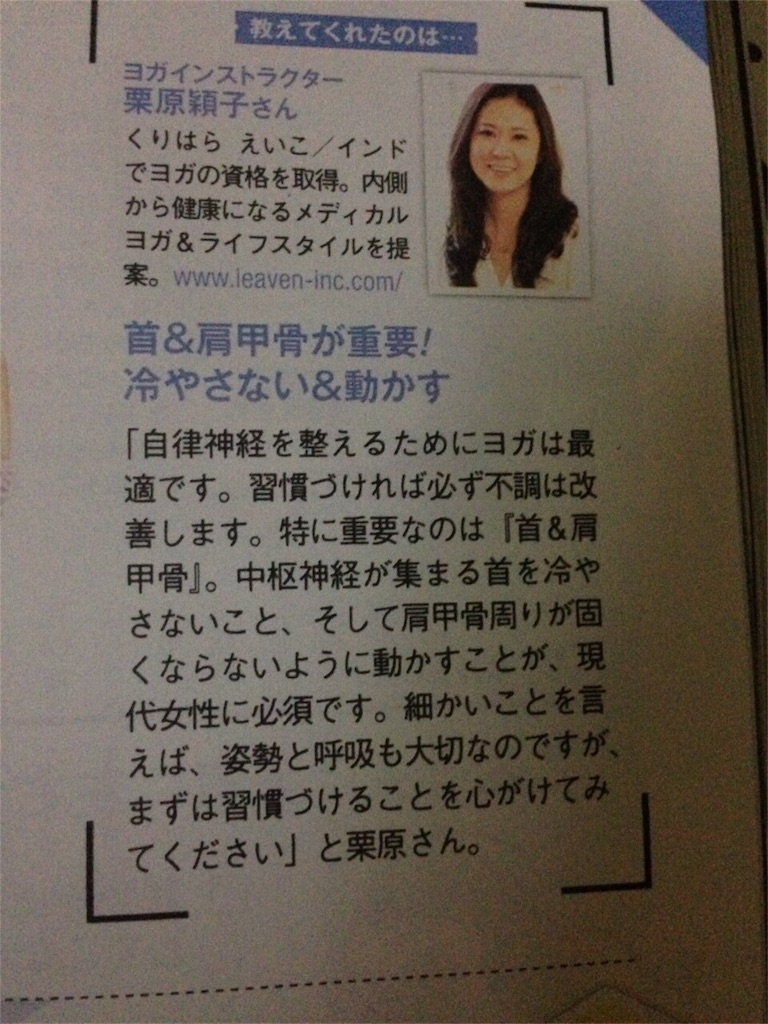 教えてくれたのは…
ヨガインストラクター
栗原穎子さん
くりはら えいこ／インド
でヨガの資格を取得。内側
から健康になるメディカル
ヨガ＆ライフスタイルを提
案。www.leaven-inc.com/
首&肩甲骨が重要!
冷やさない&動かす
「自律神経を整えるためにヨガは最
適です。習慣づければ必ず不調は改
善します。特に重要なのは『首&肩
甲骨』。中枢神経が集まる首を冷や
さないこと、そして肩甲骨周りが固
くならないように動かすことが、現
代女性に必須です。細かいことを言
えば、姿勢と呼吸も大切なのですが、
まずは習慣づけることを心がけてみ
てください」と栗原さん。